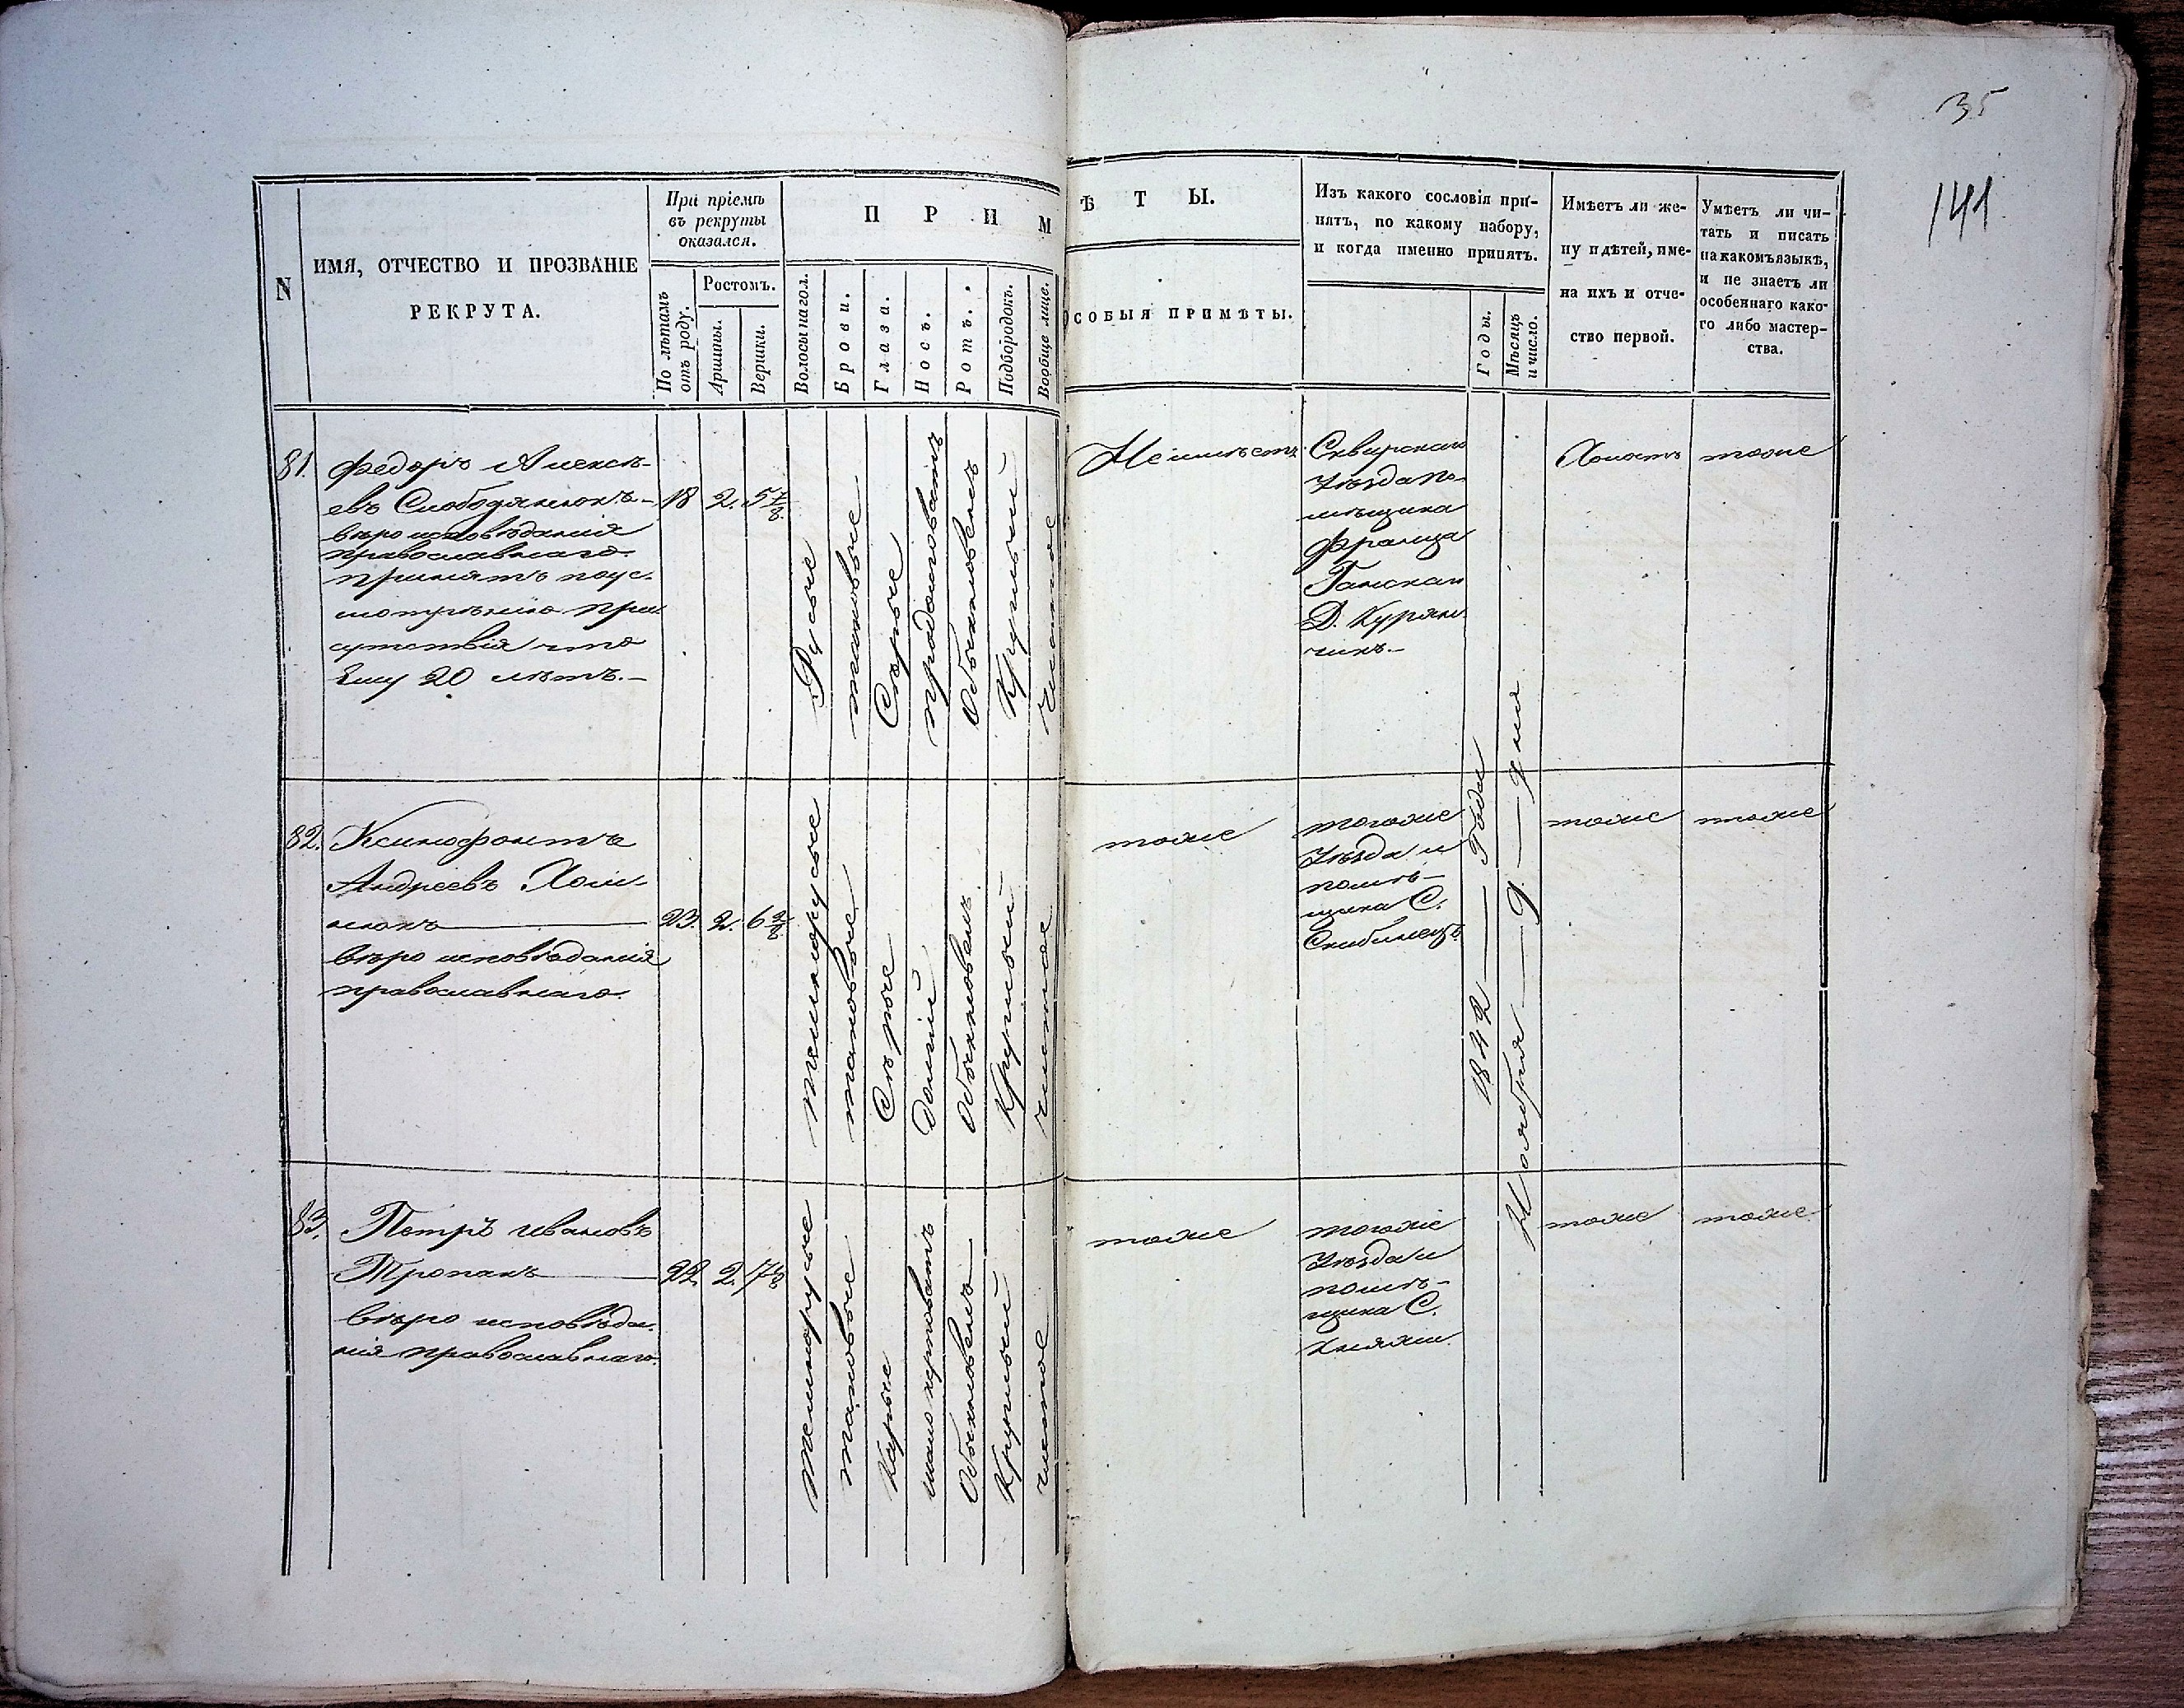 35
141
N
ИМЯ, ОТЧЕСТВО И ПРОЗВАНІЕ
РЕКРУТА.
При пріемѣ
въ рекруты
оказался.
По лѣтамъ
отъ роду.
Ростомъ.
Аршины.
Вершки.
П Р И М
Волосы на гол.
Брови.
Глаза.
Носъ.
Ротъ.
Подбородокъ.
Вообще лице.
Ѣ Т Ы.
ОСОБЫЯ ПРИМѢТЫ.
Изъ какого сословія при-
нятъ, по какому набору,
и когда именно принятъ.
Годы.
Мѣсяцъ
и число.
Имѣетъ ли же-
ну и дѣтей, име-
на ихъ и отче-
ство первой.
Умѣетъ ли чи-
тать и писать
на какомъ языкѣ,
и не знаетъ ли
особеннаго како-
го либо мастер-
ства.
81.
Федоръ Алексѣ-
евъ Слободянюкъ.-
вѣро исповѣданія
православнаго
принятъ поус-
мотрѣнію при
сутствія что
Ему 20 лѣтъ.-
18
2.
5 7/8
Русые
таковые
Сѣрые
продолговатъ
Обыкновенъ
Круглый
чистое
Неимѣетъ
Сквирскаго
Уѣзда По-
мѣщика
Франца
Д.
Холостъ
тоже
82.
Ксинофонтъ
Андреевъ
вѣро исповѣданія
православнаго.
23.
2.
6 2/8
темнорусые
таковые
Сѣрые
долгій
Обыкновенъ
Круглый
чистое
тоже
тогоже
Уѣзда и
помѣ-
щика С.
Скибинецъ
тоже
тоже
1842 — Года
Ноября — 9 — дня
83.
Петръ Ивановъ
Тропакъ
вѣро исповѣда-
нія православнаго.
22.
2.
темнорусые
таковые
Карые
Обыкновенъ
Круглый
чистое
тоже
тогоже
Уѣзда и
помѣ-
щика С.
тоже
тоже